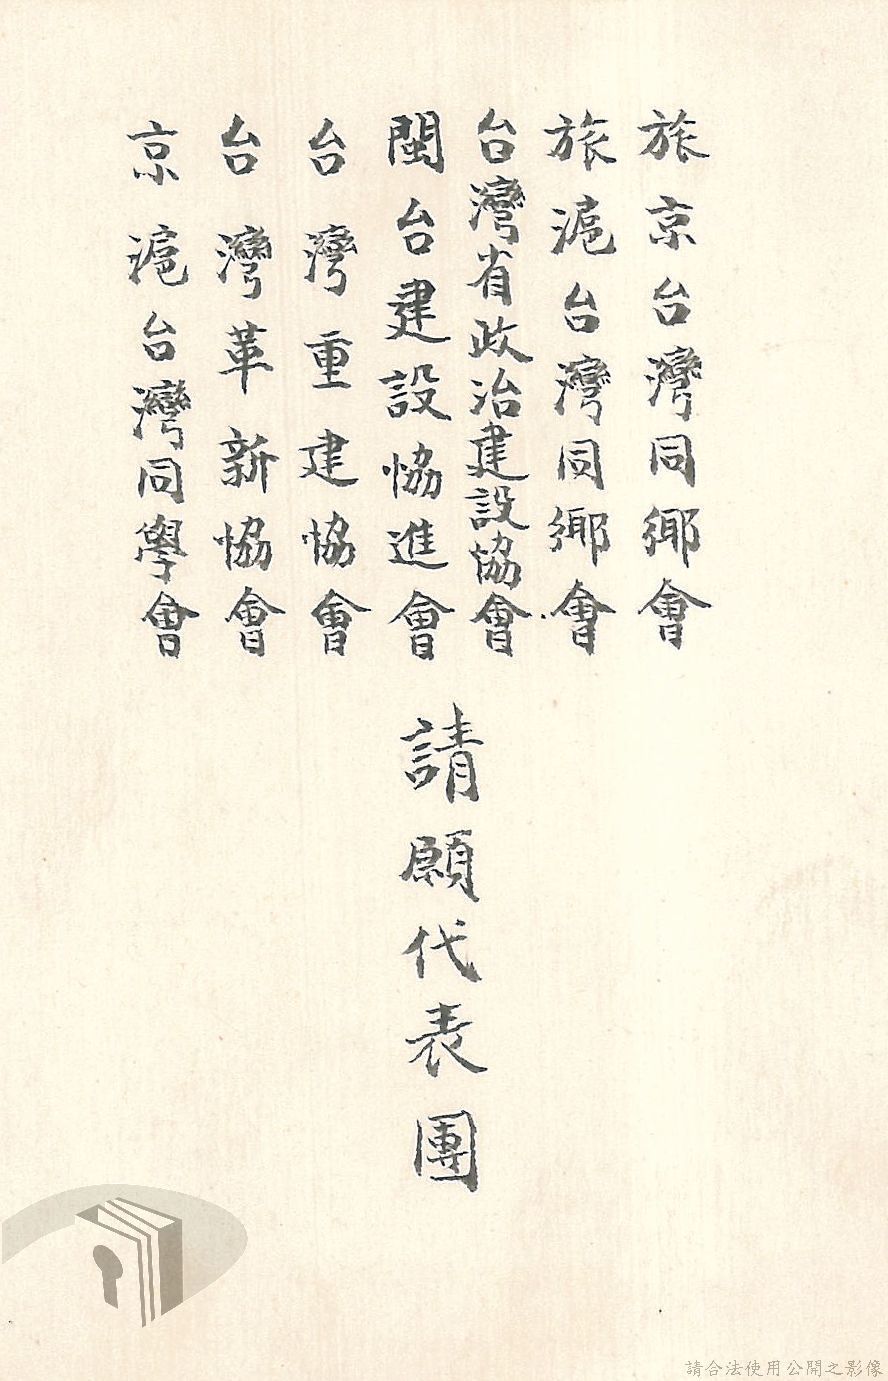 旅京台灣同鄉會
旅滬台灣同鄉會
台灣省政治建設協會
閩台建設協進會
台灣重建協會
台灣革新協會
京滬台灣同學會
請願代表團
請合法使用公開之影像